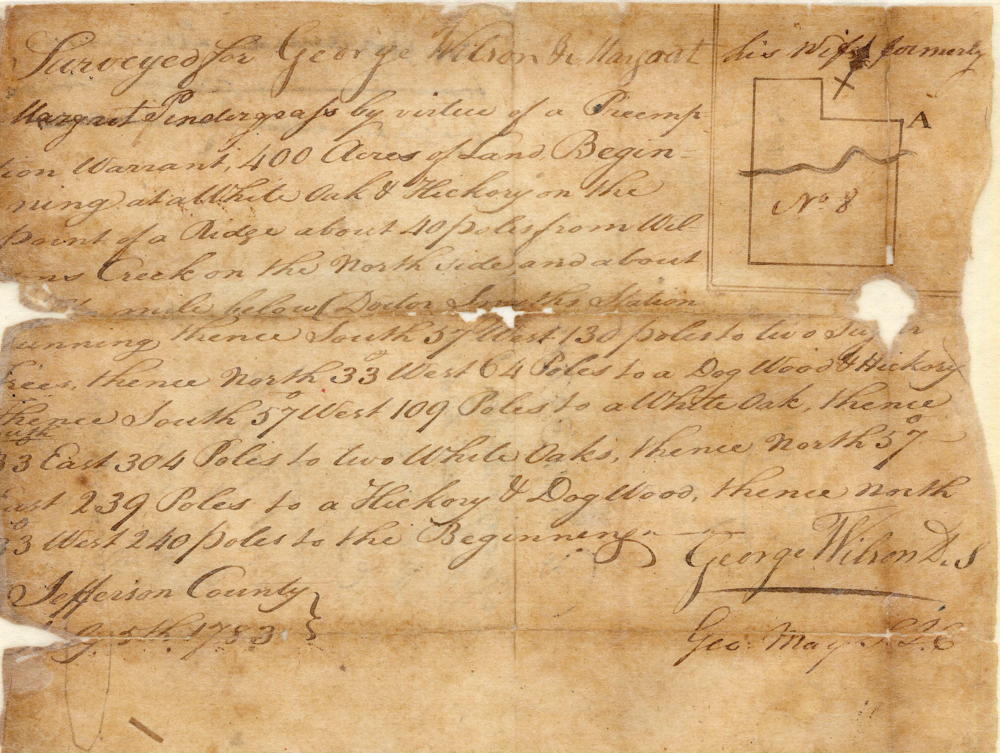 Surveyed for George Wilson & Margaret his Wife formerly
Margret Pendergrass by virtue of a Preemp
tion Warrant, 400 Acres of Land Begin-
ning at a White Oak & Hickory on the
Point of a Ridge about 40 poles from Wil-
ns Creek on the North side and about
mile below Doctor Smiths Station
unning thence South 57° West 130 poles to two
Trees, thence North 33° West 64 Poles to a Dog Wood & Hickory
thence South 57° West 109 Poles to a White Oak, thence
South
33 East 304 Poles to two White Oaks, thence North 57°
East 239 Poles to a Hickory & Dog Wood, thence North
33° West 240 poles to the Beginning
George Wilson D. S
Jefferson County
5th 1783
Geo. May S. J. C
A
No. 8